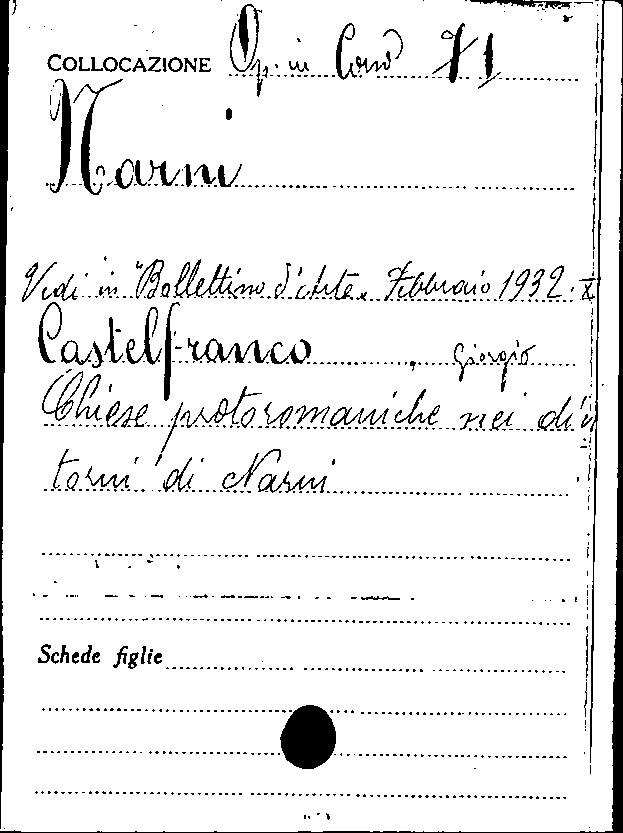 COLLOCAZIONE Op. in Cons 71
Narni
Vedi in "Bollettino d'Arte„ Febbraio 1932. X
Castelfranco, Giorgio
Chiese protoromaniche nei din
torni di Narni
Schede figlie